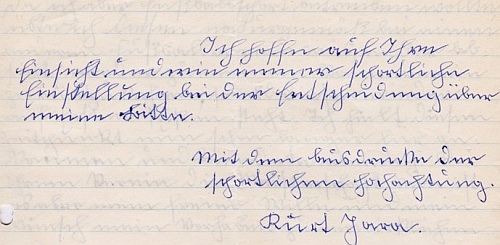 Ich hoffe auf Ihre
Einsicht und wie immer sportliche
Einstellung bei der Entscheidung über
meine Bitte.
Mit dem Ausdrucke der
sportlichen Hochachtung.
Kurt Jara.